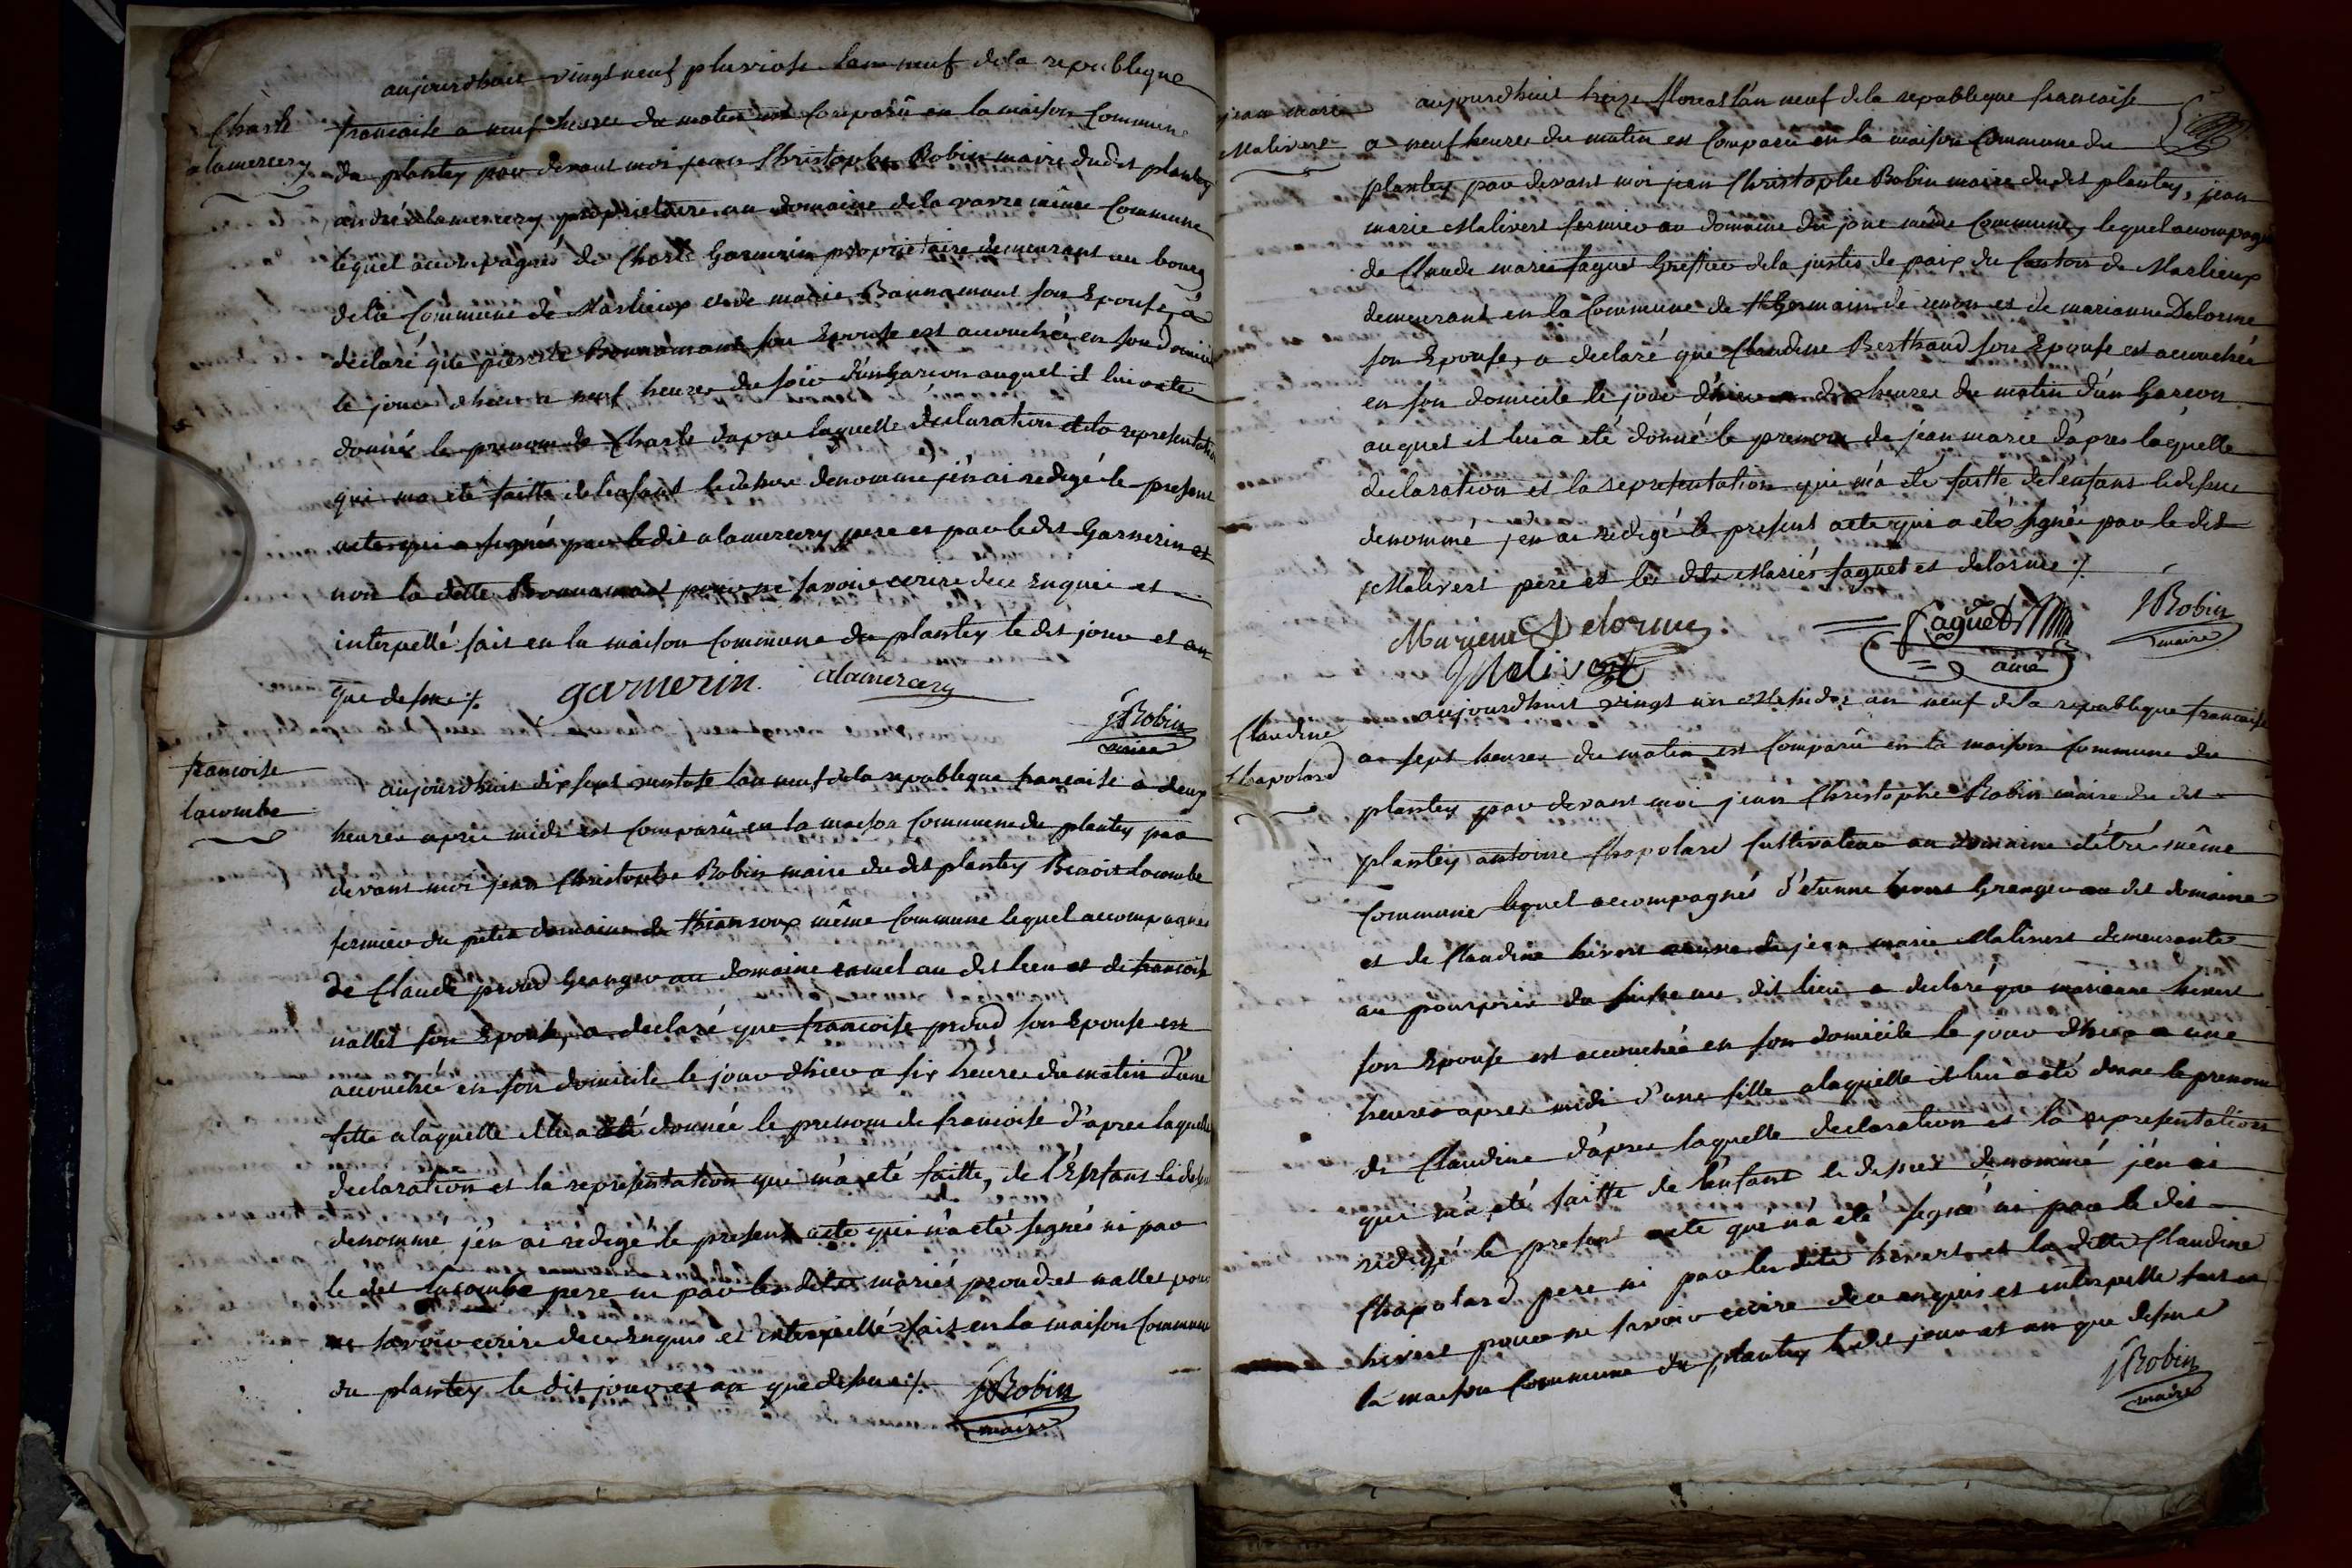 aujourdhuit vingt neuf pluviose lan neuf de la republique
Charle
alamercery
francoise a neuf heures du matin est Comparû en la maison Commune
du plantey par devant moi jean Christophe Robin maire dudit plantey
andré alamercery proprietaire au domaine de la varre même Commune
lequel accompagnés de Charle Garnerin proprietaire demeurant au bourg
de la Commune de Marlieux et de marie Bonnamant son Epouse, a
declaré que Bonnamant son Epouse est accouchée en son domicile
le jour dhier a neuf heures du soir d'un Garcon auquel il lui a ete
donnés le prenom de Charle dapres laquelle declaration et la representation
qui ma eté faitte de lenfant le dessus denommé j'en ai redigé le present
acte qui a signés par le dit alamercery pere et par le dit Garnerin et
non la ditte Bonnamant pour ne savoir ecrire de ce Enquie et
interpellé fait en la maison Commune du plantey le dit jour et an
que dessus ·/.
garnerin. alamercery
JRobin
maire
francoise
lacombe
aujourdhuit dix sept ventose lan neuf de la republique francaise a deux
heures aprie midi est Comparû en la maison Commune du plantey par
devant moi jean Christophe Robin maire du dit plantey Benoit lacombe
fermier du petit domaine de même Commune lequel accompagnés
de Claude proud Granger au domaine au dit lieu et de francoise
nallet son Epouse, a declaré que francoise proud son Epouse est
accouchée en son domicile le jour dhier a six heures du matin d'une
fille a laquelle il lui a été donnée le prenom de francoise d'apres laquelle
declaration et la representation qui m'a eté faitte, de l'Enfant le dessus
denommé j'en ai redigé le present acte qui n'a eté signés ni par
le dit lacombe pere ni par les dites mariés proud et nallet pour
ne savoir ecrire de ce Enquis et interpellé fait en la maison Commune
du plantey le dit jour et an que dessus ·/.
JRobin
maire
jean marie
Malivert
aujourdhuit treize floreal l'an neuf de la republique francaise
a neuf heures du matin est Comparu en la maison Commune du
plantey par devant moi jean Christophe Robin maire du dit plantey, jean
marie Malivert fermier au domaine du jonc même Commune, lequel accompagné
de Claude marie faguet Greffier de la justis de paix du Canton de Marlieux
demeurant en la Commune de St Germain de renon et de marianne Delorme
son Epouse, a declaré que Claudine Berthaud son Epouse est accouchée
en son domicile le jour d'hier a dix heures du matin d'un Garcon
auquel il lui a été donné le prenom de jean marie d'apres laquelle
declaration et la representation qui m'a été faitte de l'enfant le dessus
denommé j'en ai redigé le present acte qui a été signée par le dit
Malivert pere et les dits Mariés faguet et delorme ·/.
Marianne Delorme
faguet
ainé
JRobin
maire
Malivert
Claudine
Chapolard
aujourdhuit vingt un Messidor an neuf de la republique francaise
a sept heures du matin est Comparû en la maison Commune du
plantey par devant moi jean Christophe Robin maire du dit
plantey antoine Chapolard Cultivateur au domaine détré même
Commune lequel accompagnés d'etienne hivert Granger au dit domaine
et de Claudine hivert veuve de jean marie Malivert demeurante
au pourprix du au dit lieu a declaré que marianne hivert
son Epouse est accouchée en son domicile le jour dhier a une
heures apres midi d'une fille a laquelle il lui a été donné le prenom
de Claudine d'apres laquelle declaration et la representation
qui m'a eté faitte de l'enfant le dessus denommé j'en ai
redigé le present acte qui n'a eté signé ni par le dit
Chapolard pere ni par les dits hivert et la ditte Claudine
hivert pour ne savoir ecrire de ce enquis et interpellé fait en
la maison Commune du plantey le dit jour et an que dessus
JRobin
maire